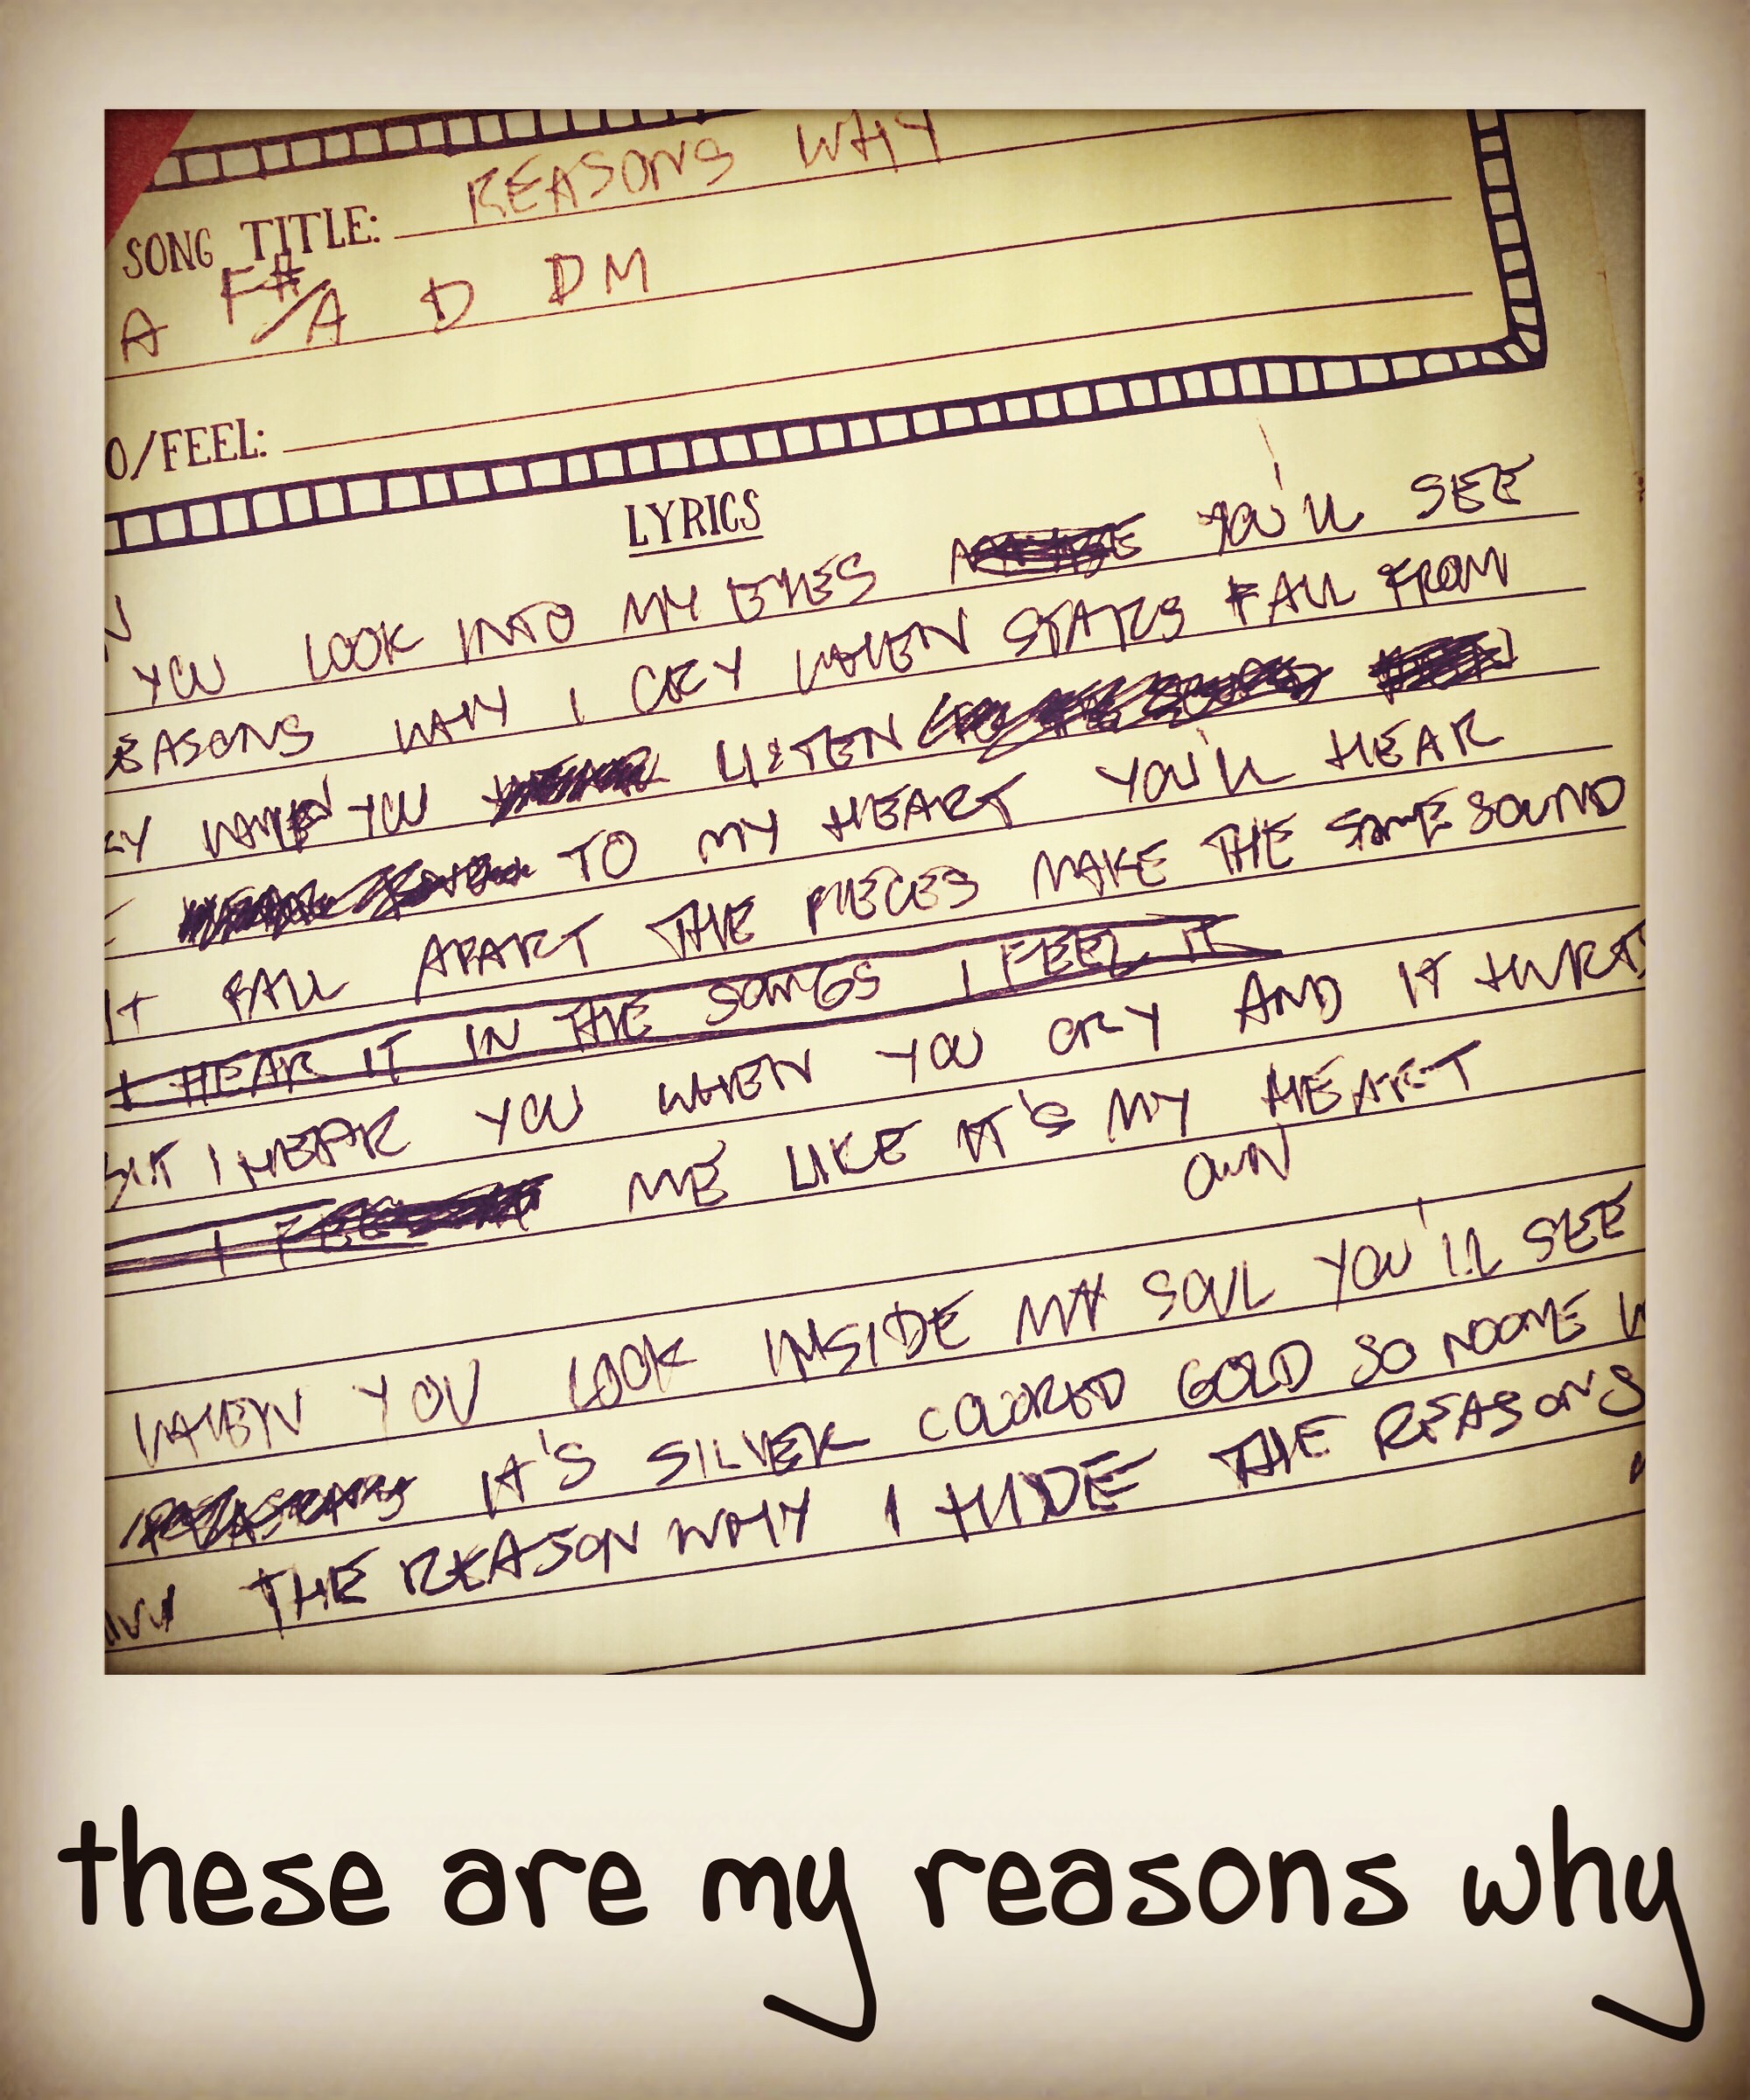 SONG TITLE: REASONS WHY
A F#/A D DM
O/FEEL:
LYRICS
YOU LOOK INTO MY EYES YOU'LL SEE
EASONS WHY I CRY WHEN STARS FALL FROM
KY WHEN YOU LISTEN
TO MY HEART YOU'LL HEAR
IT FALL APART THE PIECES MAKE THE SAME SOUND
I HEAR IT IN THE SONGS I FEEL IT
BUT I HEAR YOU WHEN YOU CRY AND IT HURTS
I FEEL ME LIKE IT'S MY HEART
OWN
WHEN YOU LOOK INSIDE MY SOUL YOU'LL SEE
REASONS IT'S SILVER COLORED GOLD SO NOONE W
THE REASON WHY I HIDE THE REASONS
these are my reasons why